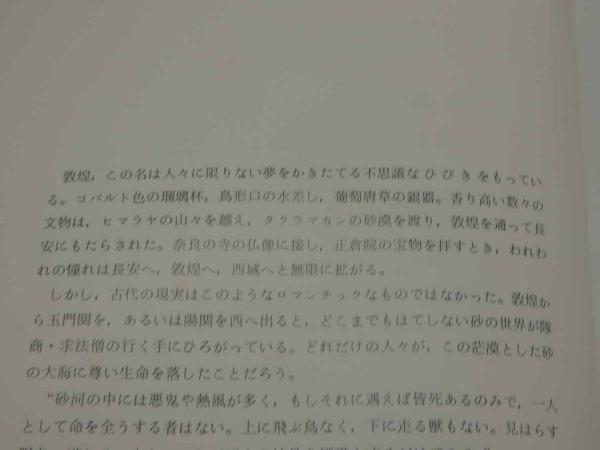 敦煌，この名は人々に限りない夢をかきたてる不思議なひびきをもってい
る。コバルト色の瑠璃杯，鳥形口の水差し，葡萄唐草の銀器。香り高い数々の
文物は，ヒマラヤの山々を越え，タクラマカンの砂漠を渡り，敦煌を通って長
安にもたらされた。奈良の寺の仏像に接し，正倉院の宝物を拝すとき，われわ
れの憧れは長安へ，敦煌へ，西域へと無限に拡がる。
しかし，古代の現実はこのようなロマンチックなものではなかった。敦煌か
ら玉門関を，あるいは陽関を西へ出ると，どこまでもはてしない砂の世界が隊
商・求法僧の行く手にひろがっている。どれだけの人々が，この茫漠とした砂
の大海に尊い生命を落したことだろう。
“砂河の中には悪鬼や熱風が多く，もしそれに遇えば皆死あるのみで，一人
として命を全うする者はない。上に飛ぶ鳥なく，下に走る獣もない。見はらす